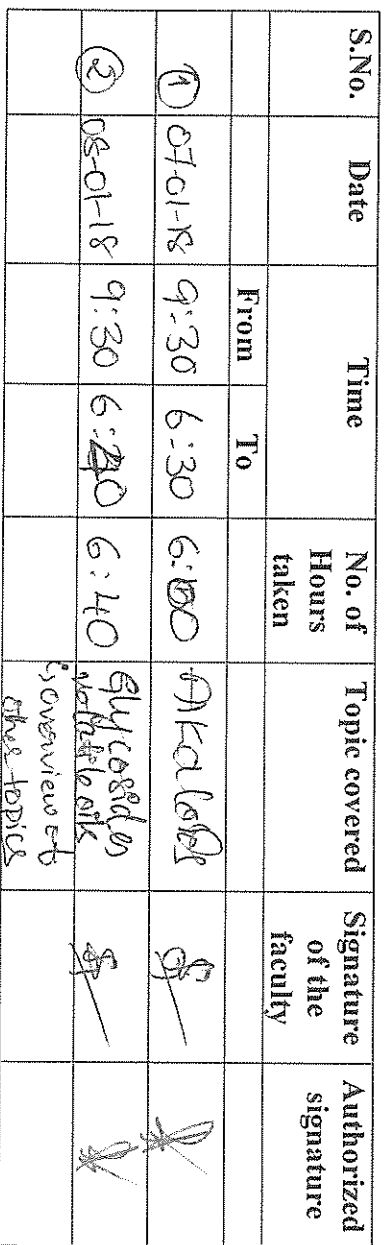 S.No. Date Time No. of Hours taken Topic covered Signature of the faculty Authorized signature
From To
1 07-01-18 9:30 6:30 6:00 Alkaloids
2 08-01-18 9:30 6:40 6:40 Glycosides
volatile oils
overview of
other topics